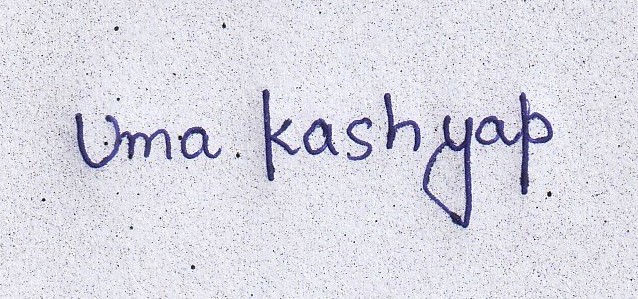 Uma kashyap